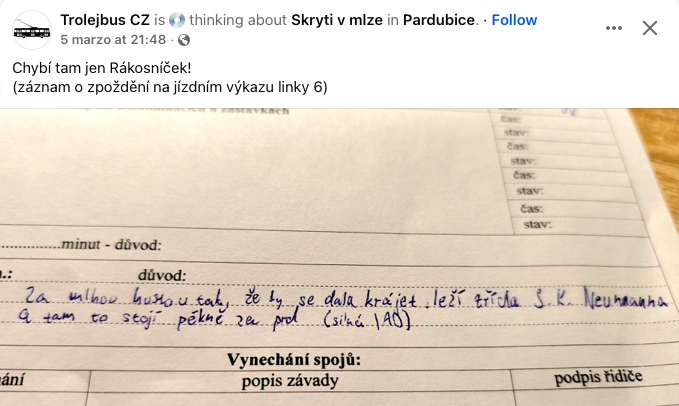 Trolejbus CZ is thinking about Skryti v mlze in Pardubice. · Follow
5 marzo at 21:48 ·
Chybí tam jen Rákosníček!
(záznam o zpoždění na jízdním výkazu linky 6)
zastávkách
čas:
stav:
čas:
stav:
čas:
stav:
čas:
stav:
minut - důvod:
důvod:
Za mlhou hustou tak, že by se dala krájet, leží třída S. K. Neumanna
a tam to stojí pěkně za prd (silná IAD)
Vynechání spojů:
popis závady
podpis řidiče